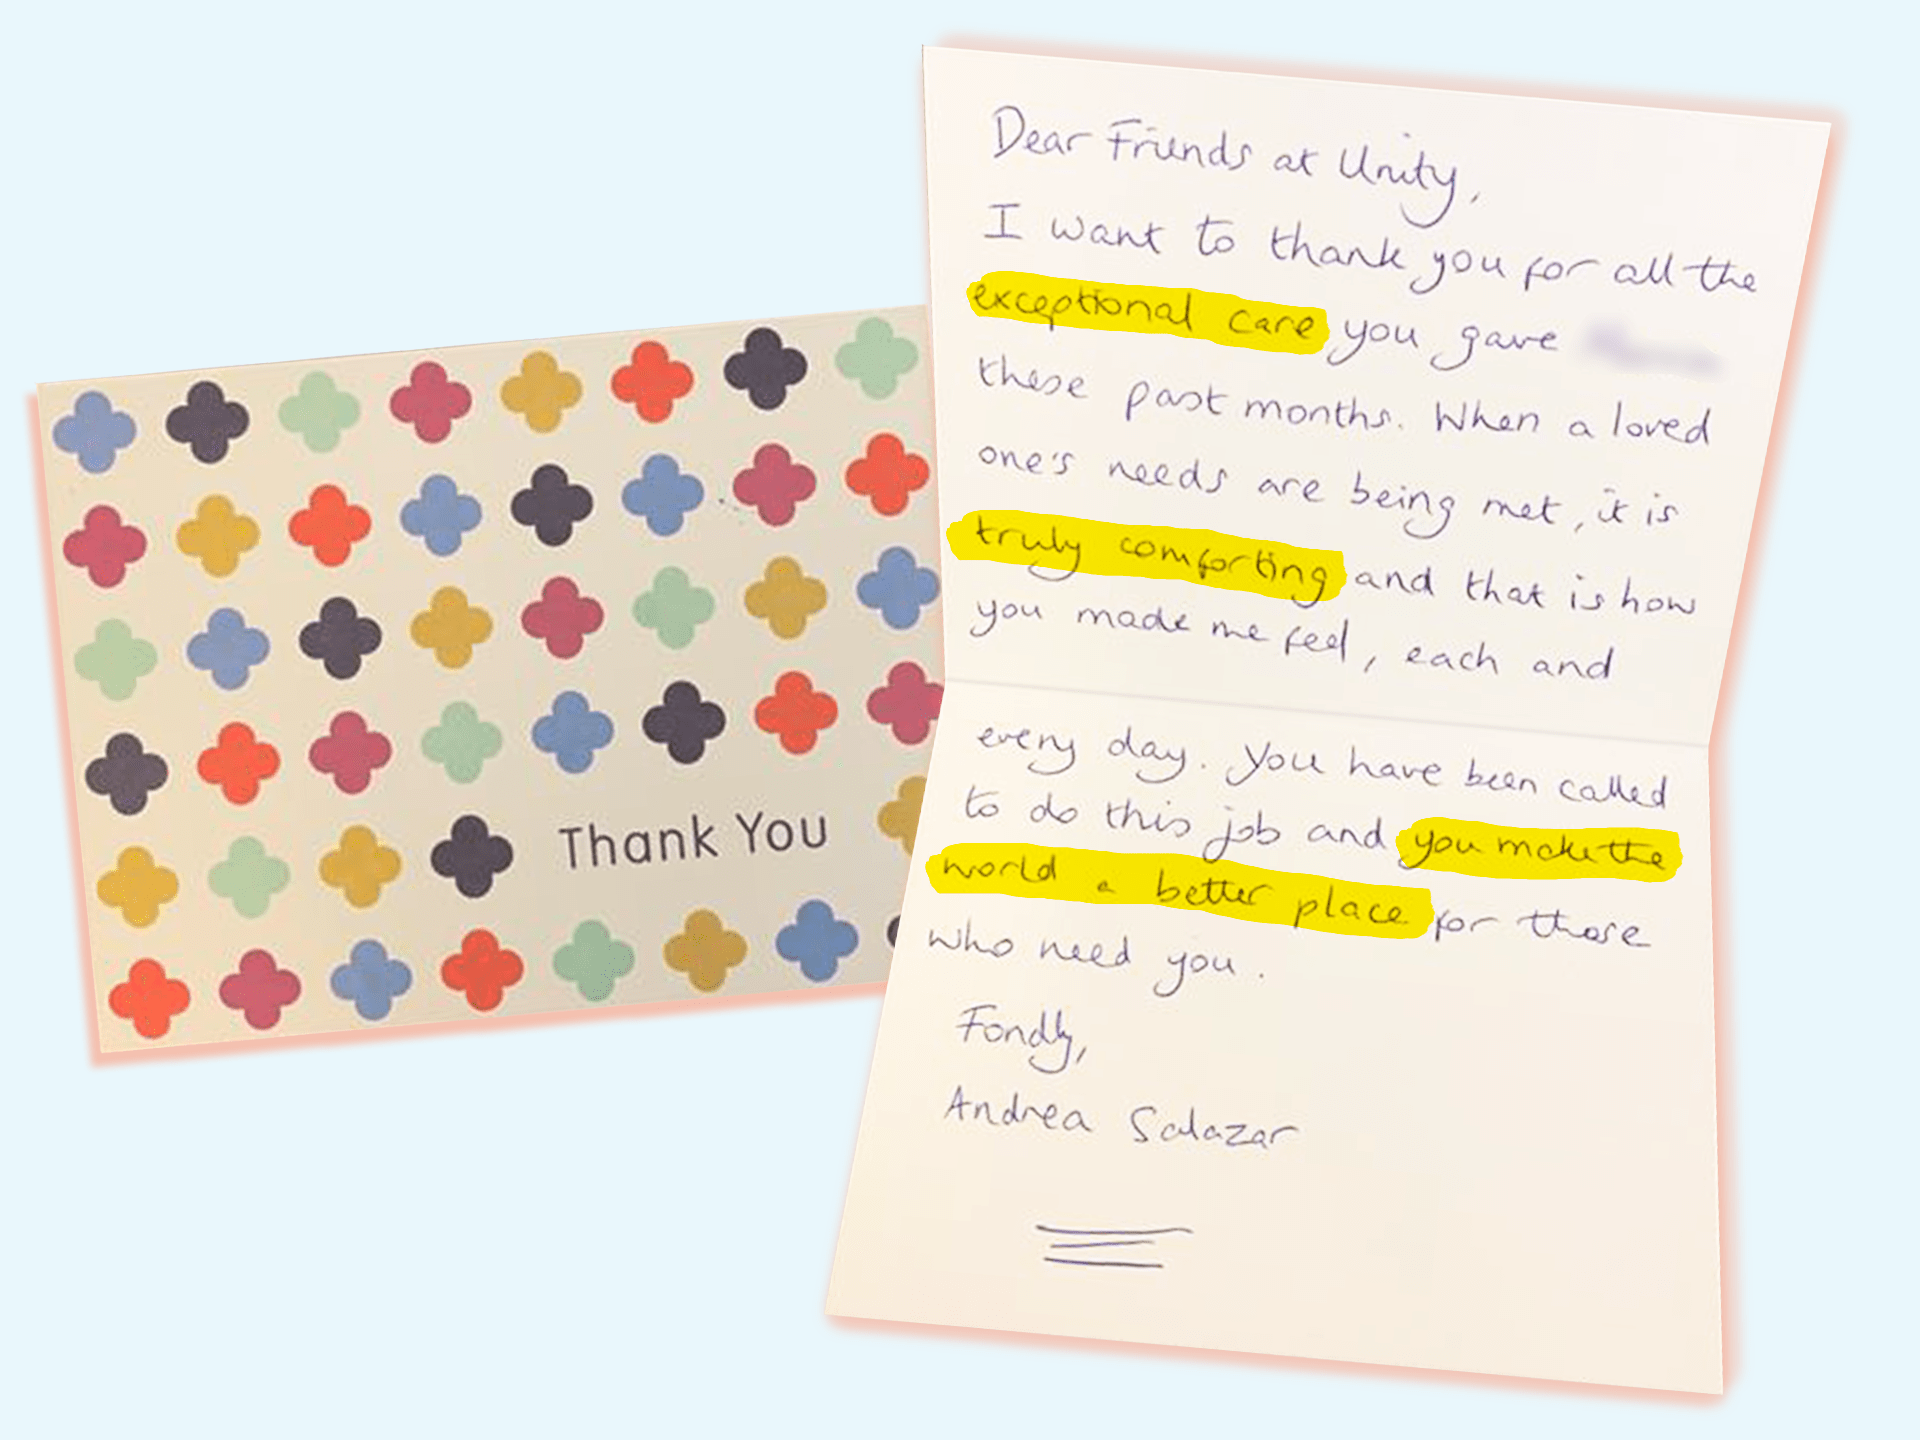 Thank You
Dear Friends at Unity,
I want to thank you for all the
exceptional care you gave
these past months. When a loved
one's needs are being met, it is
truly comforting and that is how
you made me feel, each and
every day. You have been called
to do this job and you make the
world a better place for those
who need you.
Fondly,
Andrea Salazar